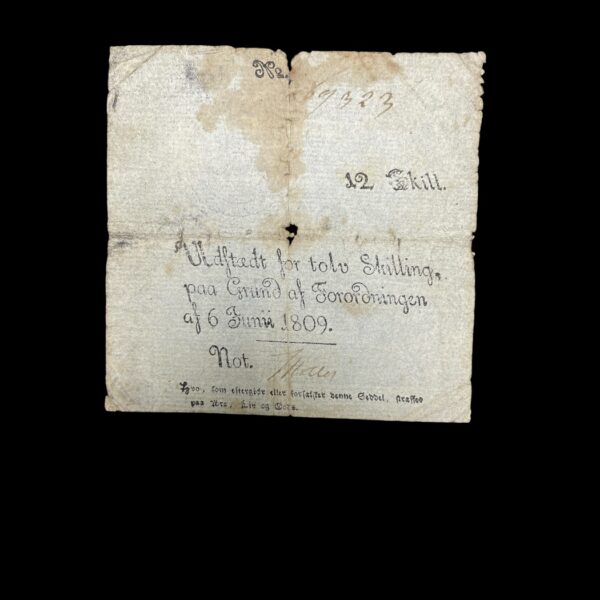 No. 9323
12 Skill.
Udstædt for tolv Skilling,
paa Grund af Forordningen
af 6 Junii 1809.
Not.
Hvo, som eftergiør eller forfalsker denne Seddel, straffes
paa Ære, Liv og Gods.